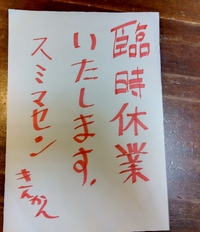 臨時休業
いたします.
スミマセン
きんかん